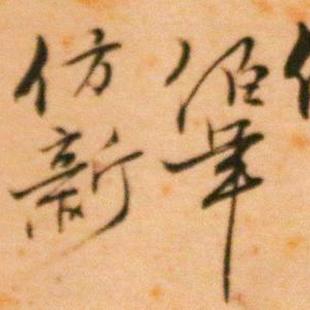 伯年
仿新